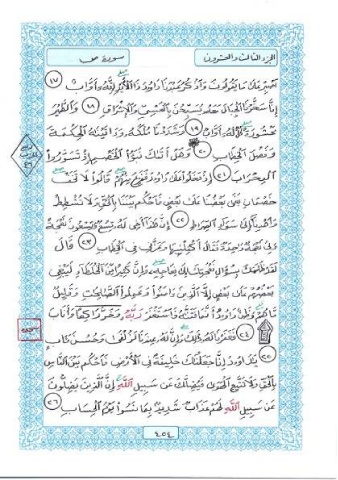 الجزء الثالث والعشرون
سورة ص
ٱصۡبِرۡ عَلَىٰ مَا يَقُولُونَ وَٱذۡكُرۡ عَبۡدَنَا دَاوُۥدَ ذَا ٱلۡأَيۡدِۖ إِنَّهُۥٓ أَوَّابٌ ١٧
إِنَّا سَخَّرۡنَا ٱلۡجِبَالَ مَعَهُۥ يُسَبِّحۡنَ بِٱلۡعَشِيِّ وَٱلۡإِشۡرَاقِ ١٨ وَٱلطَّيۡرَ
مَحۡشُورَةٗۖ كُلّٞ لَّهُۥٓ أَوَّابٞ ١٩ وَشَدَدۡنَا مُلۡكَهُۥ وَءَاتَيۡنَٰهُ ٱلۡحِكۡمَةَ
وَفَصۡلَ ٱلۡخِطَابِ ٢٠ وَهَلۡ أَتَىٰكَ نَبَؤُاْ ٱلۡخَصۡمِ إِذۡ تَسَوَّرُواْ
ٱلۡمِحۡرَابَ ٢١ إِذۡ دَخَلُواْ عَلَىٰ دَاوُۥدَ فَفَزِعَ مِنۡهُمۡۖ قَالُواْ لَا تَخَفۡۖ
خَصۡمَانِ بَغَىٰ بَعۡضُنَا عَلَىٰ بَعۡضٖ فَٱحۡكُم بَيۡنَنَا بِٱلۡحَقِّ وَلَا تُشۡطِطۡ
وَٱهۡدِنَآ إِلَىٰ سَوَآءِ ٱلصِّرَٰطِ ٢٢ إِنَّ هَٰذَآ أَخِي لَهُۥ تِسۡعٞ وَتِسۡعُونَ نَعۡجَةٗ
وَلِيَ نَعۡجَةٞ وَٰحِدَةٞ فَقَالَ أَكۡفِلۡنِيهَا وَعَزَّنِي فِي ٱلۡخِطَابِ ٢٣ قَالَ
لَقَدۡ ظَلَمَكَ بِسُؤَالِ نَعۡجَتِكَ إِلَىٰ نِعَاجِهِۦۖ وَإِنَّ كَثِيرٗا مِّنَ ٱلۡخُلَطَآءِ لَيَبۡغِي
بَعۡضُهُمۡ عَلَىٰ بَعۡضٍ إِلَّا ٱلَّذِينَ ءَامَنُواْ وَعَمِلُواْ ٱلصَّٰلِحَٰتِ وَقَلِيلٞ
مَّا هُمۡۗ وَظَنَّ دَاوُۥدُ أَنَّمَا فَتَنَّٰهُ فَٱسۡتَغۡفَرَ رَبَّهُۥ وَخَرَّۤ رَاكِعٗاۤ وَأَنَابَ
٢٤ فَغَفَرۡنَا لَهُۥ ذَٰلِكَۖ وَإِنَّ لَهُۥ عِندَنَا لَزُلۡفَىٰ وَحُسۡنَ مَـَٔابٖ
٢٥ يَٰدَاوُۥدُ إِنَّا جَعَلۡنَٰكَ خَلِيفَةٗ فِي ٱلۡأَرۡضِ فَٱحۡكُم بَيۡنَ ٱلنَّاسِ
بِٱلۡحَقِّ وَلَا تَتَّبِعِ ٱلۡهَوَىٰ فَيُضِلَّكَ عَن سَبِيلِ ٱللَّهِۚ إِنَّ ٱلَّذِينَ يَضِلُّونَ
عَن سَبِيلِ ٱللَّهِ لَهُمۡ عَذَابٞ شَدِيدُۢ بِمَا نَسُواْ يَوۡمَ ٱلۡحِسَابِ ٢٦
٤٥٤